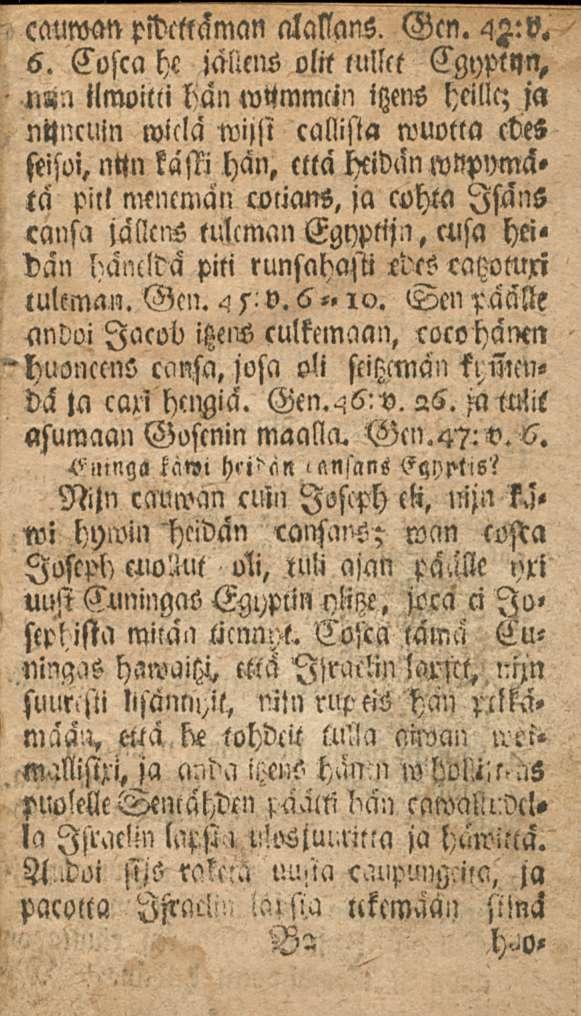 cauwan pidettämän alallans. Gen. 42: v.
6. Cosca he jällens olit tullet Egyptijn,
nijn ilmoitti hän wijmmein itzens heille; ja
nijncuin wielä wijsi callista wuotta edes
seisoi, nijn käski hän, että heidän wijpymä-
tä piti menemän cotians, ja cohta Isäns
cansa jällens tuleman Egyptijn, cusa hei-
dän häneldä piti runsahasti edes catzotuxi
tuleman. Gen. 45: v. 6 - 10. Sen päälle
andoi Jacob itzens culkemaan, coco hänen
huoneens cansa, josa oli seitzemän kym̃en-
dä ja caxi hengiä. Gen. 46: v. 26. ja tulit
asumaan Gosenin maalla. Gen. 47: v. 6.
Cuinga käwi heidän cansans Egyptis?
Nijn cauwan cuin Joseph eli, nijn kä-
wi hywin heidän cansans; wan cosca
Joseph cuollut oli, tuli ajan päälle yxi
uusi Cuningas Egyptin ylitze, joca ei Jo-
sephista mitän tiennyt. Cosca tämä Cu-
ningas hawaitzi, että Israelin lapset, nijn
suuresti lisännyit, nijn rupeis hän pelkä-
mään, että he tohdeit tulla aiwan woi-
mallisixi, ja anda itzens hänen wihollistens
puolelle Sentähden päätti hän cawaludel-
la Israelin lapsia ulosjuuritta ja häwittä.
Andoi sijs raketa uusia caupungeita, ja
pacotta Israelin lapsia tekemään siinä
B2 huo-